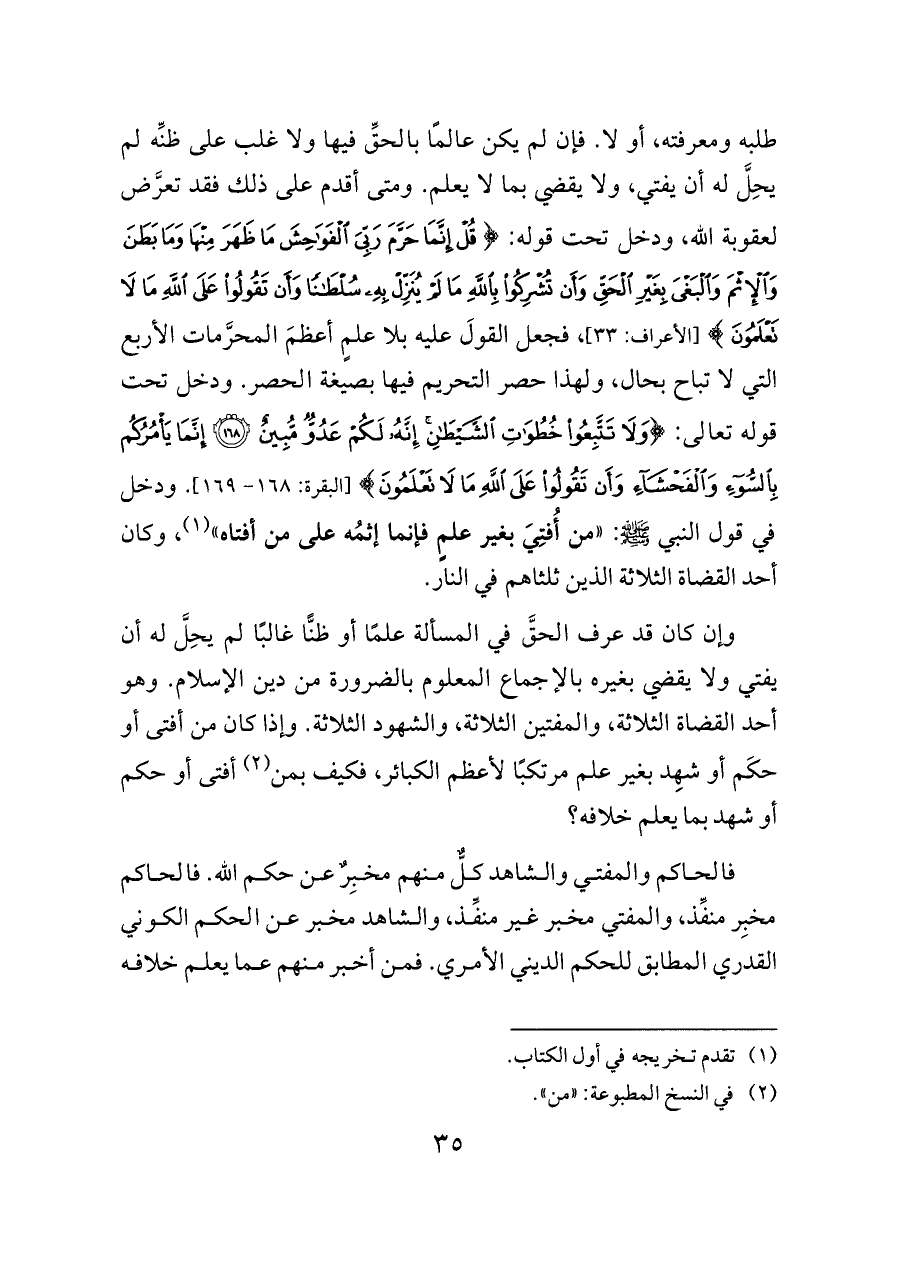 طلبه ومعرفته، أو لا. فإن لم يكن عالمًا بالحقِّ فيها ولا غلب على ظنِّه لم
يحِلَّ له أن يفتي، ولا يقضي بما لا يعلم. ومتى أقدم على ذلك فقد تعرَّض
لعقوبة الله، ودخل تحت قوله: ﴿قُلْ إِنَّمَا حَرَّمَ رَبِّيَ ٱلْفَوَٰحِشَ مَا ظَهَرَ مِنْهَا وَمَا بَطَنَ
وَٱلْإِثْمَ وَٱلْبَغْىَ بِغَيْرِ ٱلْحَقِّ وَأَن تُشْرِكُوا۟ بِٱللَّهِ مَا لَمْ يُنَزِّلْ بِهِۦ سُلْطَٰنًا وَأَن تَقُولُوا۟ عَلَى ٱللَّهِ مَا لَا
تَعْلَمُونَ﴾ [الأعراف: ٣٣]، فجعل القولَ عليه بلا علمٍ أعظمَ المحرَّمات الأربع
التي لا تباح بحال، ولهذا حصر التحريم فيها بصيغة الحصر. ودخل تحت
قوله تعالى: ﴿وَلَا تَتَّبِعُوا۟ خُطُوَٰتِ ٱلشَّيْطَٰنِ ۚ إِنَّهُۥ لَكُمْ عَدُوٌّ مُّبِينٌ ١٦٨ إِنَّمَا يَأْمُرُكُم
بِٱلسُّوٓءِ وَٱلْفَحْشَآءِ وَأَن تَقُولُوا۟ عَلَى ٱللَّهِ مَا لَا تَعْلَمُونَ﴾ [البقرة: ١٦٨- ١٦٩]. ودخل
في قول النبي ﷺ: «من أُفتِيَ بغير علمٍ فإنما إثمُه على من أفتاه»(١)، وكان
أحد القضاة الثلاثة الذين ثلثاهم في النار.
وإن كان قد عرف الحقَّ في المسألة علمًا أو ظنًّا غالبًا لم يحِلَّ له أن
يفتي ولا يقضي بغيره بالإجماع المعلوم بالضرورة من دين الإسلام. وهو
أحد القضاة الثلاثة، والمفتين الثلاثة، والشهود الثلاثة. وإذا كان من أفتى أو
حكَم أو شهِد بغير علم مرتكبًا لأعظم الكبائر، فكيف بمن(٢) أفتى أو حكم
أو شهد بما يعلم خلافه؟
فالحاكم والمفتي والشاهد كلٌّ منهم مخبِرٌ عن حكم الله. فالحاكم
مخبِر منفِّذ، والمفتي مخبر غير منفِّذ، والشاهد مخبر عن الحكم الكوني
القدري المطابق للحكم الديني الأمري. فمن أخبر منهم عما يعلم خلافه
(١) تقدم تخريجه في أول الكتاب.
(٢) في النسخ المطبوعة: «من».
٣٥